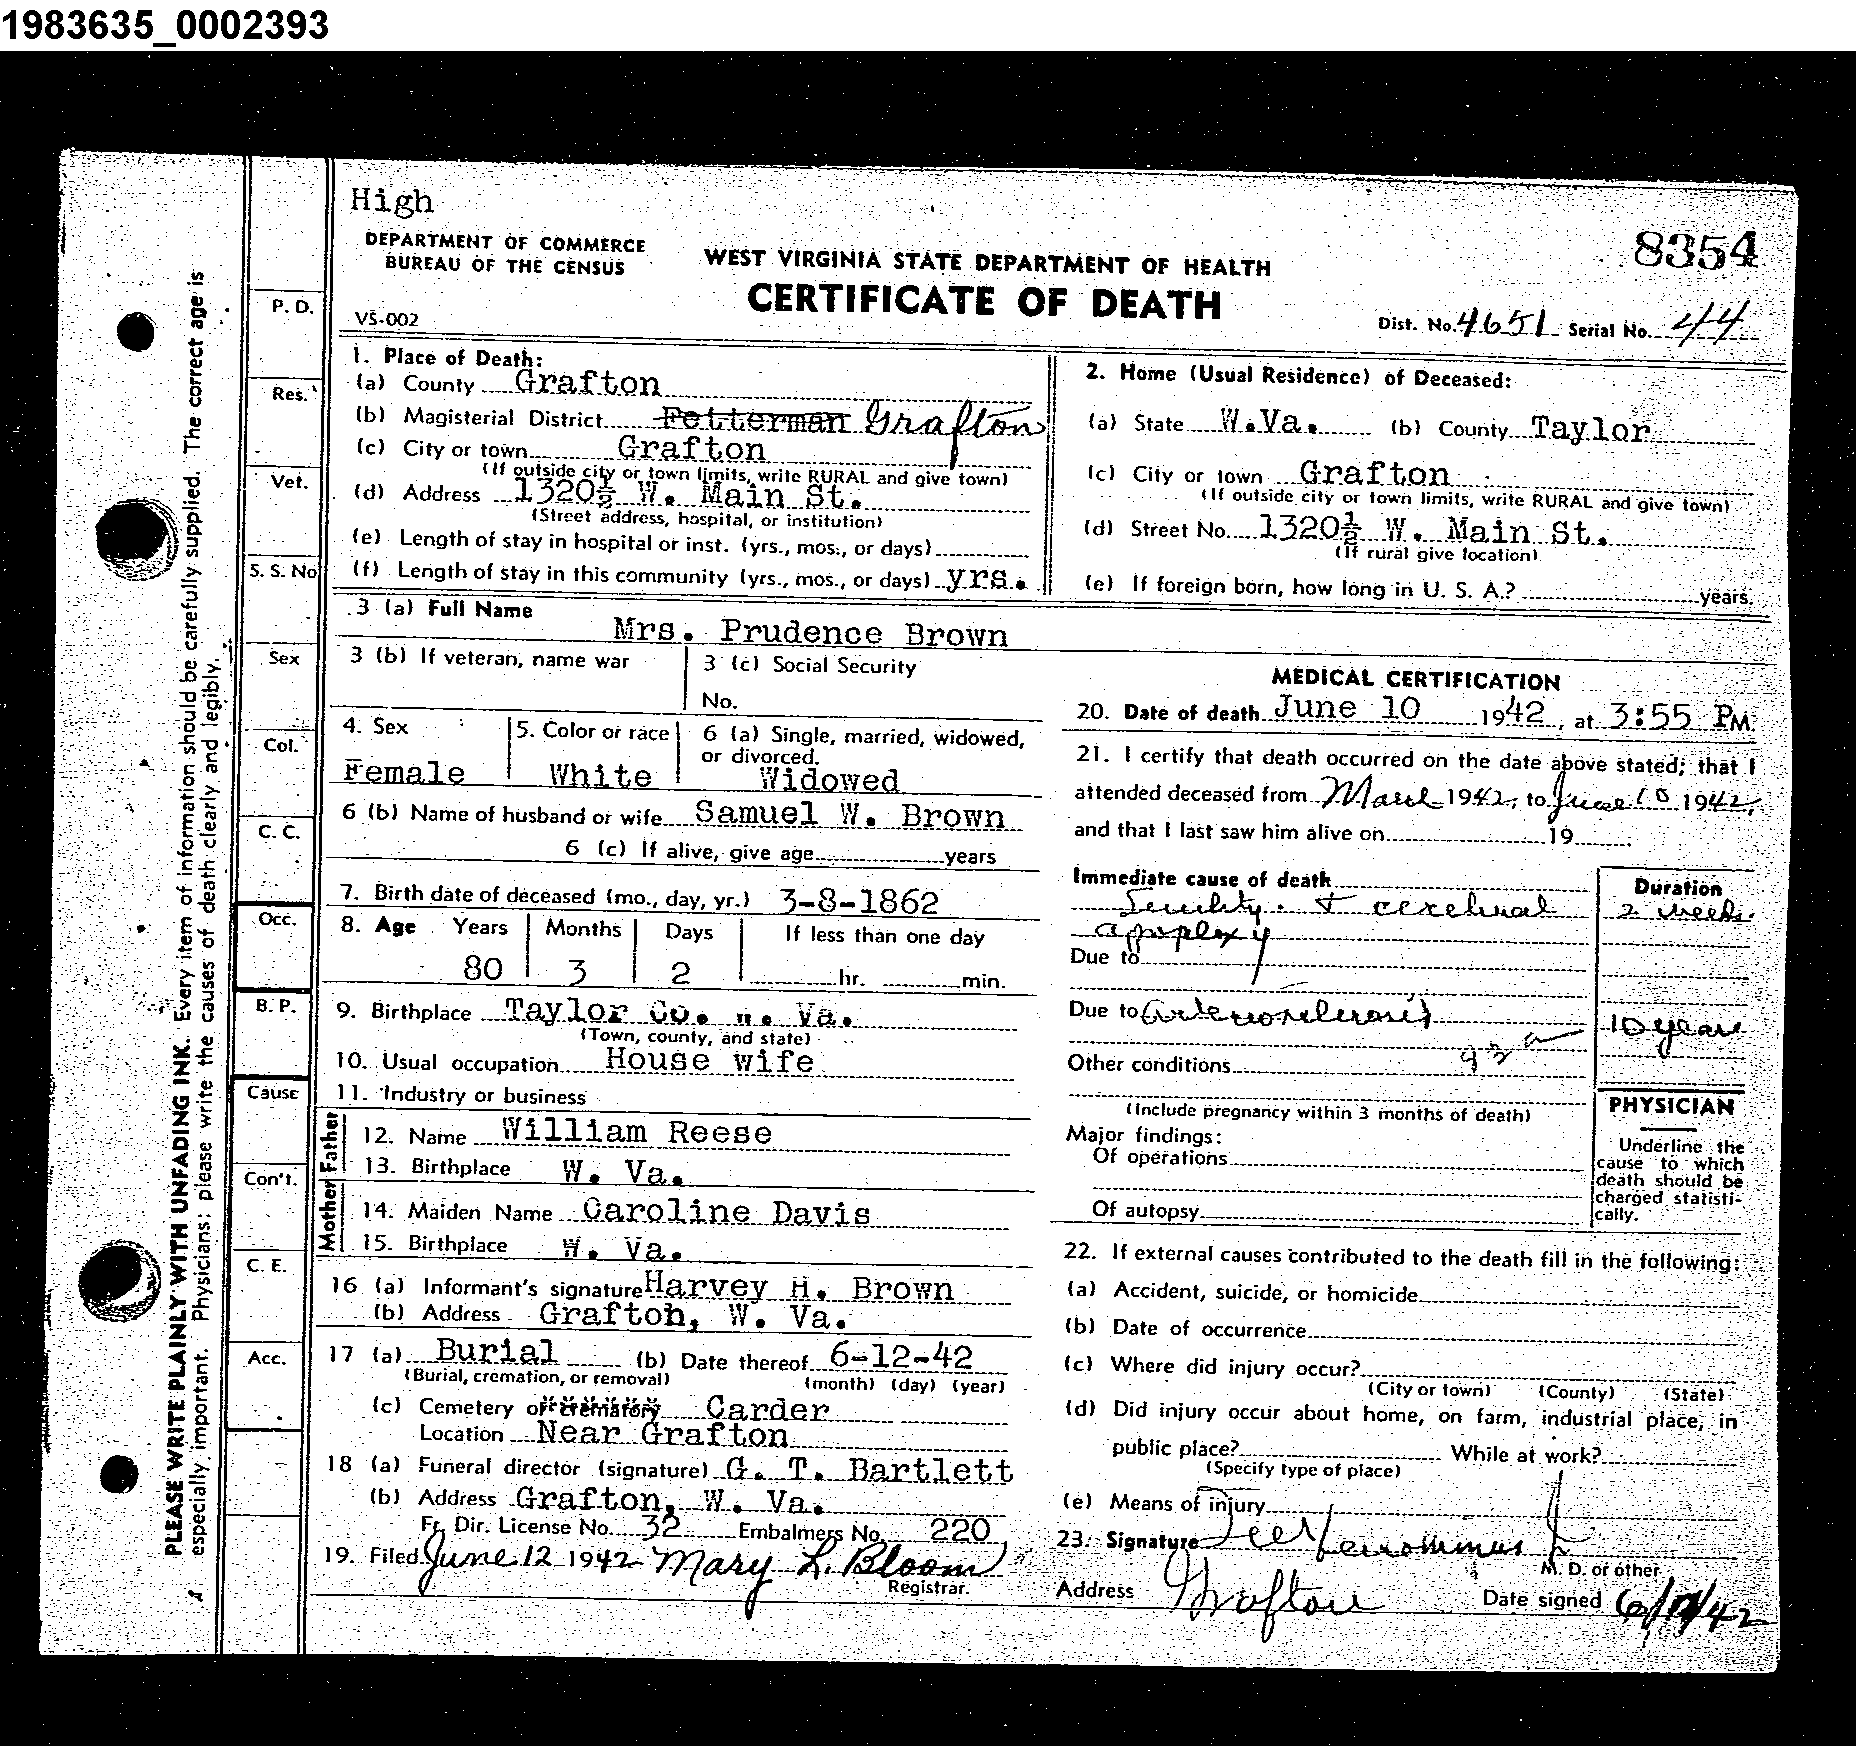 1983635_0002393
High
DEPARTMENT OF COMMERCE
BUREAU OF THE CENSUS
WEST VIRGINIA STATE DEPARTMENT OF HEALTH
8354
CERTIFICATE OF DEATH
VS-002
Dist. No. 4651 Serial No. 44
1. Place of Death:
(a) County Grafton
(b) Magisterial District Fetterman Grafton
(c) City or town Grafton
(If outside city or town limits, write RURAL and give town)
(d) Address 1320½ W. Main St.
(Street address, hospital, or institution)
(e) Length of stay in hospital or inst. (yrs., mos., or days)
(f) Length of stay in this community (yrs., mos., or days) yrs.
2. Home (Usual Residence) of Deceased:
(a) State W.Va. (b) County Taylor
(c) City or town Grafton
(If outside city or town limits, write RURAL and give town)
(d) Street No. 1320½ W. Main St.
(If rural give location)
(e) If foreign born, how long in U. S. A.? years
3 (a) Full Name
Mrs. Prudence Brown
3 (b) If veteran, name war
3 (c) Social Security
No.
4. Sex
Female
5. Color or race
White
6 (a) Single, married, widowed,
or divorced.
Widowed
6 (b) Name of husband or wife Samuel W. Brown
6 (c) If alive, give age years
7. Birth date of deceased (mo., day, yr.) 3-8-1862
8. Age Years Months Days If less than one day
80 3 2 hr. min.
9. Birthplace Taylor Co. W. Va.
(Town, county, and state)
10. Usual occupation House wife
11. Industry or business
Father
12. Name William Reese
13. Birthplace W. Va.
Mother
14. Maiden Name Caroline Davis
15. Birthplace W. Va.
16 (a) Informant's signature Harvey H. Brown
(b) Address Grafton, W. Va.
17 (a) Burial (b) Date thereof 6-12-42
(Burial, cremation, or removal) (month) (day) (year)
(c) Cemetery or crematory Carder
Location Near Grafton
18 (a) Funeral director (signature) G. T. Bartlett
(b) Address Grafton, W. Va.
Fr. Dir. License No. 32 Embalmers No. 220
19. Filed June 12 1942 Mary L. Bloom
Registrar.
MEDICAL CERTIFICATION
20. Date of death June 10 1942, at 3:55 PM
21. I certify that death occurred on the date above stated; that I
attended deceased from March 1942, to June 10 1942,
and that I last saw him alive on 19
Immediate cause of death
Duration
Senility & cerebral
2 weeks
apoplexy
Due to
Due to Arteriosclerosis
10 years
93a
Other conditions
(Include pregnancy within 3 months of death)
Major findings:
Of operations
Of autopsy
PHYSICIAN
Underline the
cause to which
death should be
charged statisti-
cally.
22. If external causes contributed to the death fill in the following:
(a) Accident, suicide, or homicide
(b) Date of occurrence
(c) Where did injury occur?
(City or town) (County) (State)
(d) Did injury occur about home, on farm, industrial place, in
public place? While at work?
(Specify type of place)
(e) Means of injury
23. Signature
M. D. or other
Address Grafton Date signed
P. D.
Res.
Vet.
S. S. No
Sex
Col.
C. C.
Occ.
B. P.
Cause
Con't.
C. E.
Acc.
PLEASE WRITE PLAINLY WITH UNFADING INK. Every item of information should be carefully supplied. The correct age is
especially important. Physicians: please write the causes of death clearly and legibly.